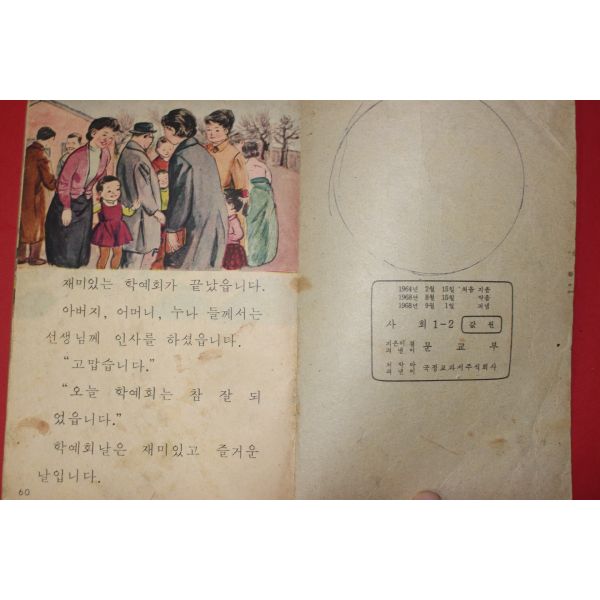 재미있는 학예회가 끝났읍니다.
아버지, 어머니, 누나 들께서는
선생님께 인사를 하셨읍니다.
“고맙습니다.”
“오늘 학예회는 참 잘 되
었읍니다.”
학예회날은 재미있고 즐거운
날입니다.
60
1964년 2월 15일 처음 지음
1968년 8월 15일 박음
1968년 9월 1일 펴냄
사 회 1-2 값 원
지은이 겸
펴낸이 문 교 부
국정교과서주식회사